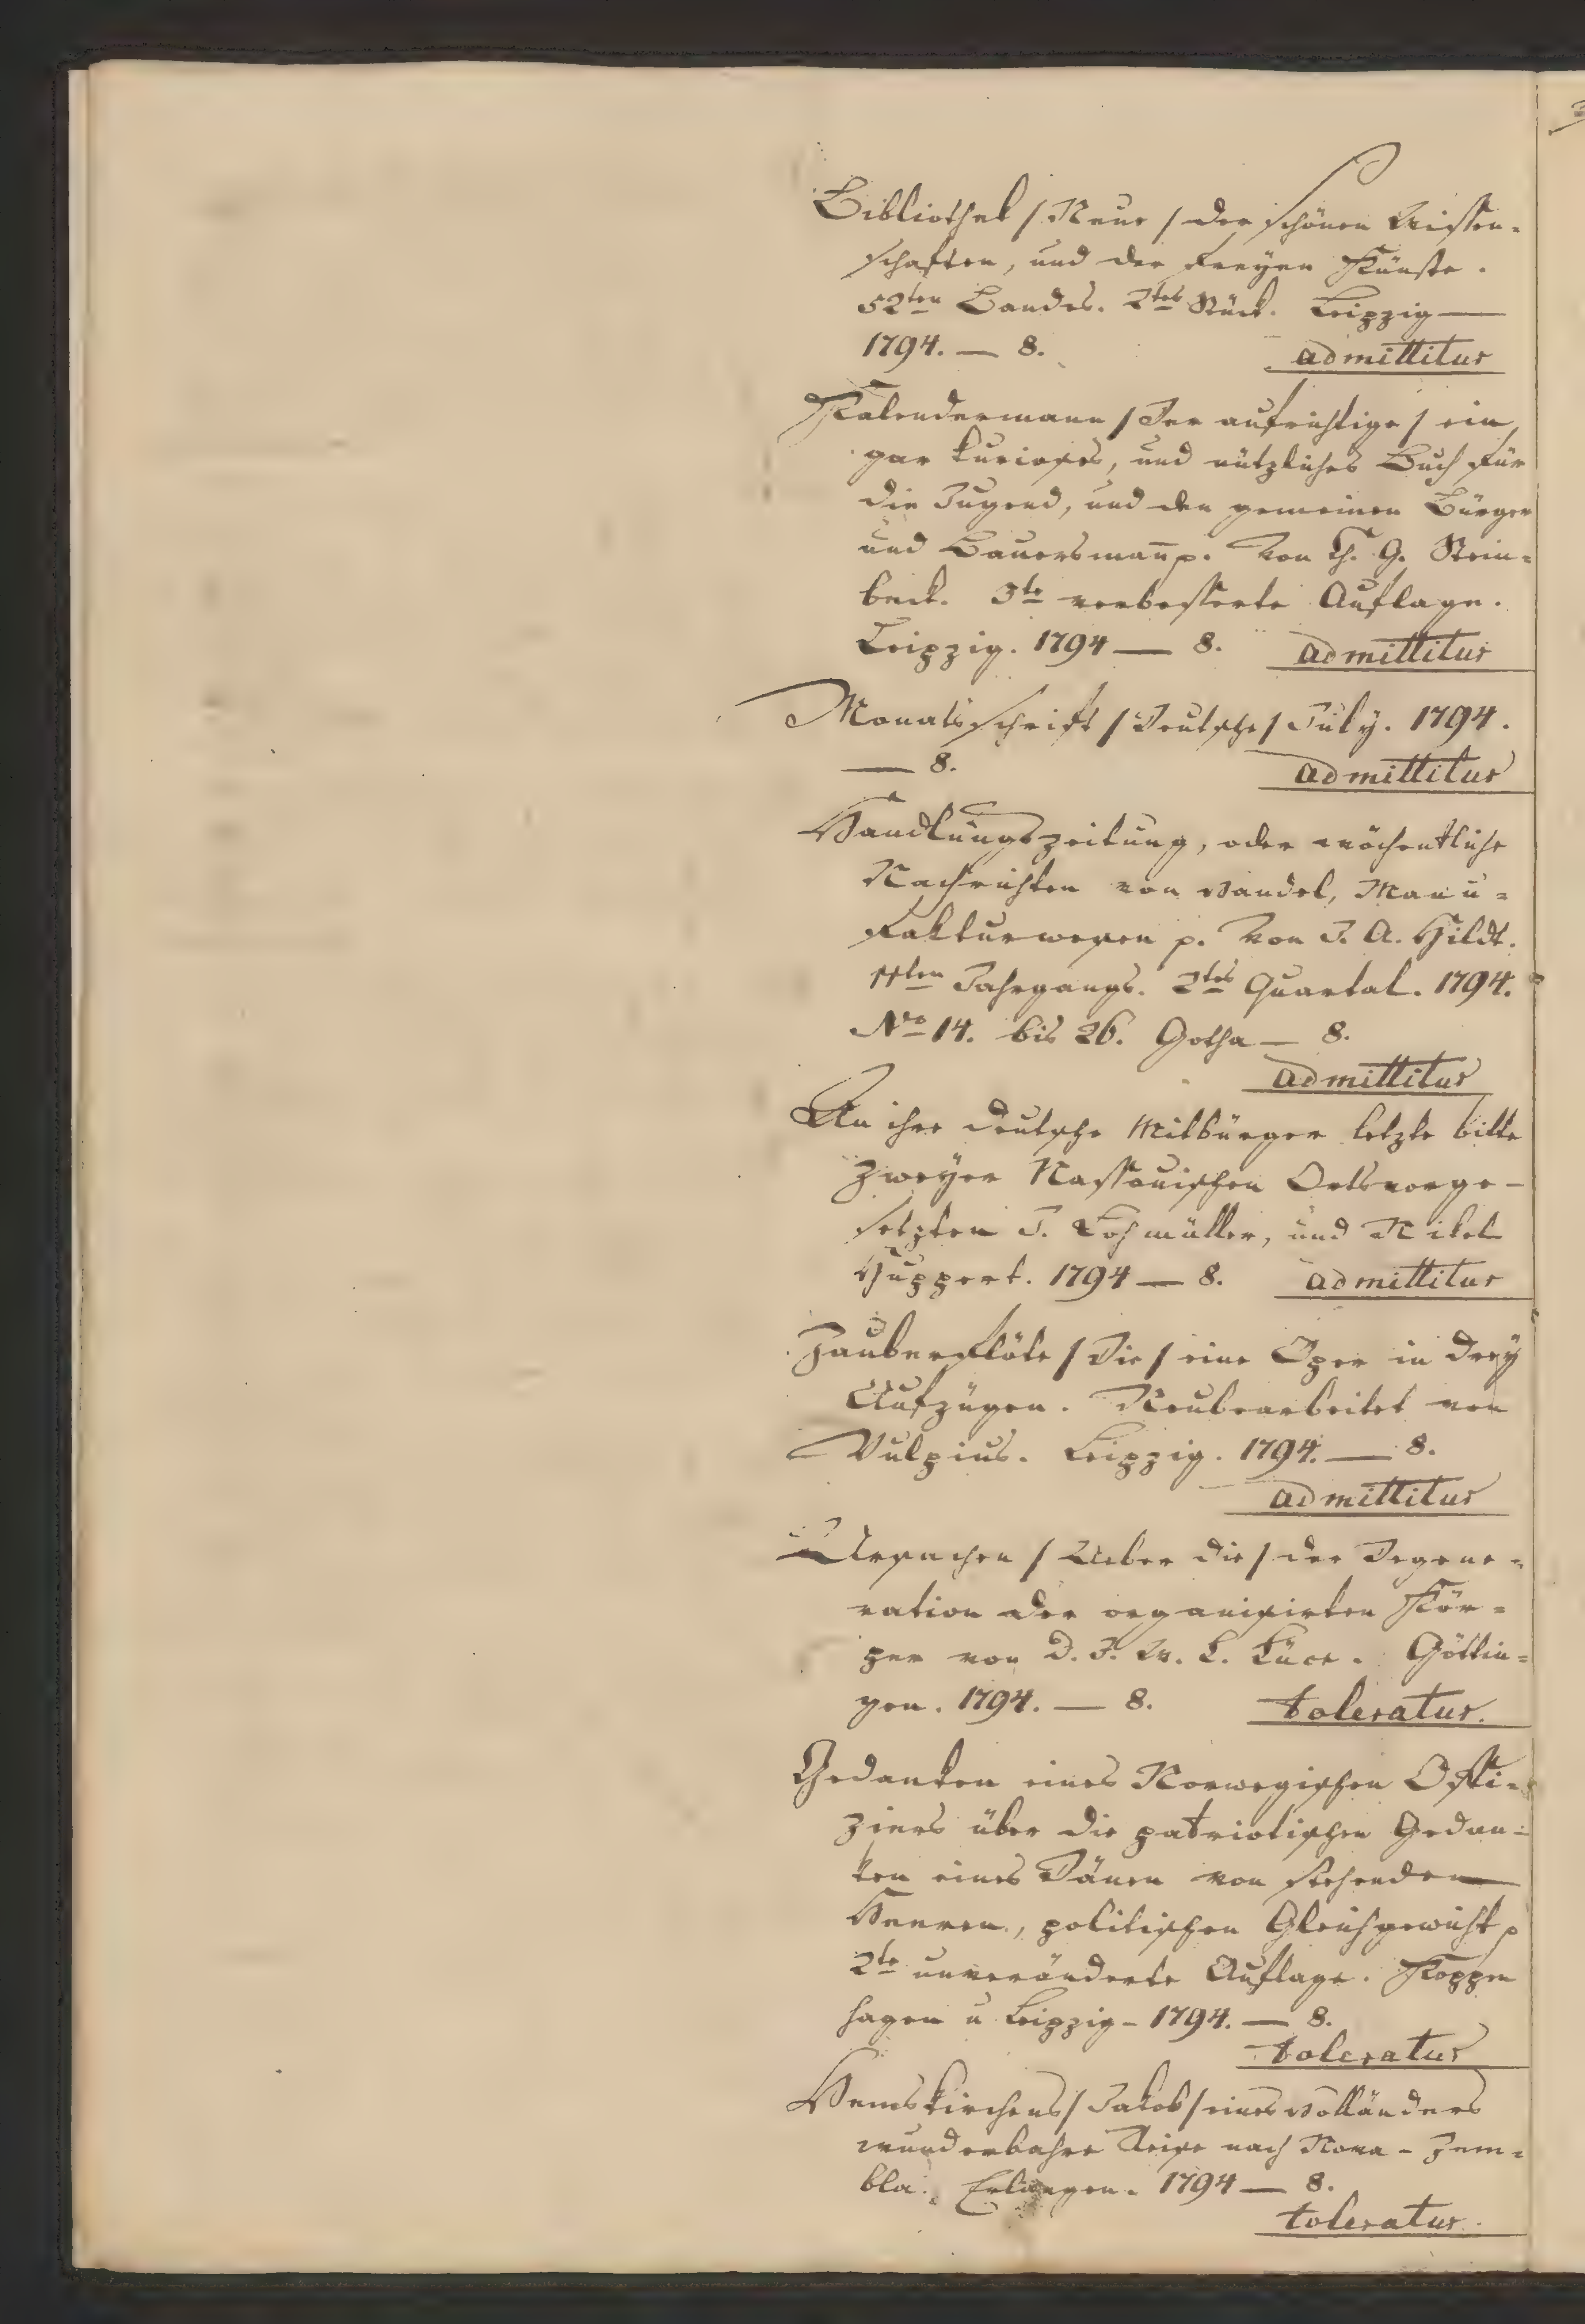 Bibliothek / Neue / der schönen Wissen=
schaften, und der freyen Künste.
52ten Bandes. 2tes Stück. Leipzig —
1794. — 8. admittitur
Kalendermann / Der aufrichtige / ein
gar kurioses, und nützliches Buch für
die Jugend, und den gemeinen Bürger
und Bauersmann p. Von Ch. G. Stein=
beck. 3te verbesserte Auflage.
Leipzig. 1794 — 8. admittitur
Monatsschrift / Deutsche / July. 1794.
— 8. admittitur
Handlungszeitung, oder wöchentliche
Nachrichten von Handel, Manu=
fakturwesen p. Von J. A. Hildt.
11ten Jahrgangs. 2tes Quartal. 1794.
No 14. bis 26. Gotha — 8.
admittitur
An ihre deutsche Mitbürger letzte bitte
zweyer Nassauischen Ortsvorge-
setzten J. Lohmüller, und Nikel
Huppert. 1794 — 8. admittitur
Zauberflöte / Die / eine Oper in drey
Aufzügen. Neubearbeitet von
Vulpius. Leipzig. 1794. — 8.
admittitur
Ursachen / Ueber die / der Degene=
ration der organisirten Kör=
per von D. J. W. L. Lüce. Göttin=
gen. 1794. — 8. toleratur.
Gedanken eines Norwegischen Offi=
ziers über die patriotischen Gedan=
ken eines Dänen von stehenden
Heeren, politischen Gleichgewicht p
2te unveränderte Auflage. Koppen
hagen u Leipzig - 1794. — 8.
toleratur
Hemskirchens / Jakob / eines Holländers
wunderbahre Reise nach Nova - Zem=
bla. Erlangen. 1794 — 8.
toleratur.